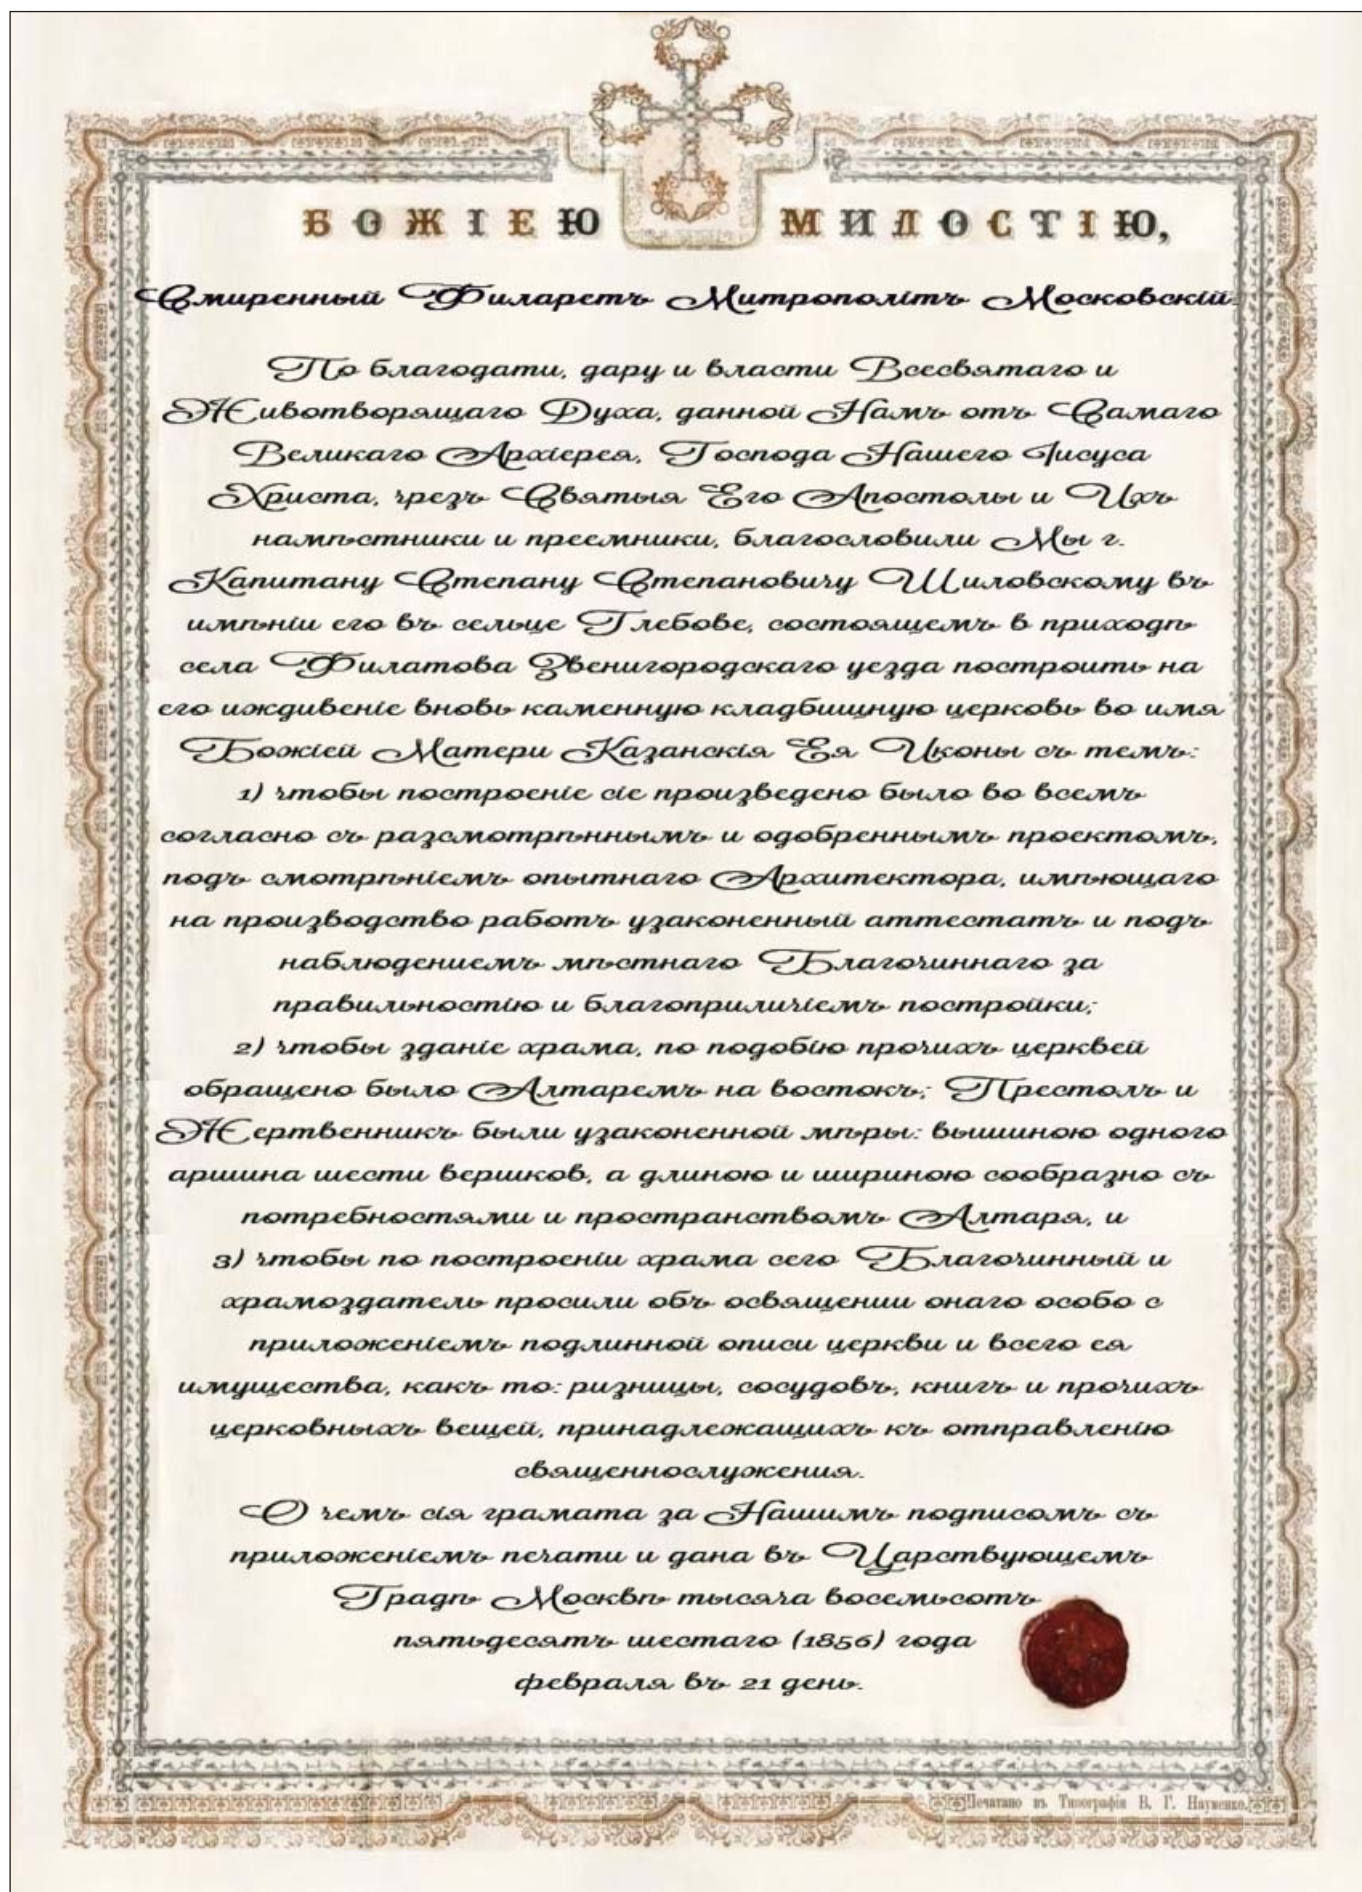 БОЖІЕЮ МИЛОСТІЮ,
Смиренный Филаретъ Митрополітъ Московскій
По благодати, дару и власти Всесвятаго и
Животворящаго Духа, данной Намъ отъ Самаго
Великаго Архіерея, Господа Нашего Іисуса
Христа, чрезъ Святыя Его Апостолы и Ихъ
намѣстники и преемники, благословили Мы г.
Капитану Степану Степановичу Шиловскому въ
имѣніи его въ сельце Глебове, состоящемъ в приходѣ
села Филатова Звенигородскаго уезда построить на
его иждивеніе вновь каменную кладбищную церковь во имя
Божіей Матери Казанскія Ея Иконы съ темъ:
1) чтобы построеніе сіе произведено было во всемъ
согласно съ разсмотрѣннымъ и одобреннымъ проектомъ,
подъ смотрѣніемъ опытнаго Архитектора, имѣющаго
на производство работъ узаконенный аттестатъ и подъ
наблюдениемъ мѣстнаго Благочиннаго за
правильностію и благоприличіемъ постройки;
2) чтобы зданіе храма, по подобію прочихъ церквей
обращено было Алтаремъ на востокъ; Престолъ и
Жертвенникъ были узаконенной мѣры: вышиною одного
аршина шести вершков, а длиною и шириною сообразно съ
потребностями и пространствомъ Алтаря, и
3) чтобы по построеніи храма сего Благочинный и
храмоздатель просили объ освящении онаго особо с
приложеніемъ подлинной описи церкви и всего ея
имущества, какъ то: ризницы, сосудовъ, книгъ и прочихъ
церковныхъ вещей, принадлежащихъ къ отправленію
священнослужения.
О чемъ сія грамата за Нашимъ подписомъ съ
приложеніемъ печати и дана въ Царствующемъ
Градѣ Москвѣ тысяча восемьсотъ
пятьдесятъ шестаго (1856) года
февраля въ 21 день.
Печатано въ Типографіи В. Г. Науменко.